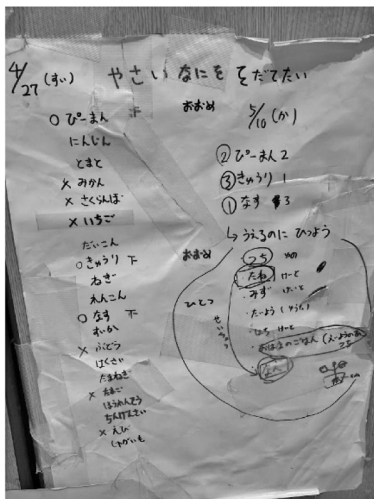 4/27 (すい) やさい なにを そだてたい
○ ぴーまん 下
にんじん
とまと
× みかん
× さくらんぼ
× いちご
だいこん
○ きゅうり 下
ねぎ
れんこん
○ なす 下
すいか
× ぶどう
はくさい
たまねぎ
× たまご
ほうれんそう
ちんげんさい
× えび
じゃがいも
おおめ
5/10 (か)
② ぴーまん 2
③ きゅうり 1
① なす 3
↳ うえるのに ひつよう
おおめ
ひとつ
つち
・たね けーと
・みず けいと
・たいよう
・つち けーと
なえ